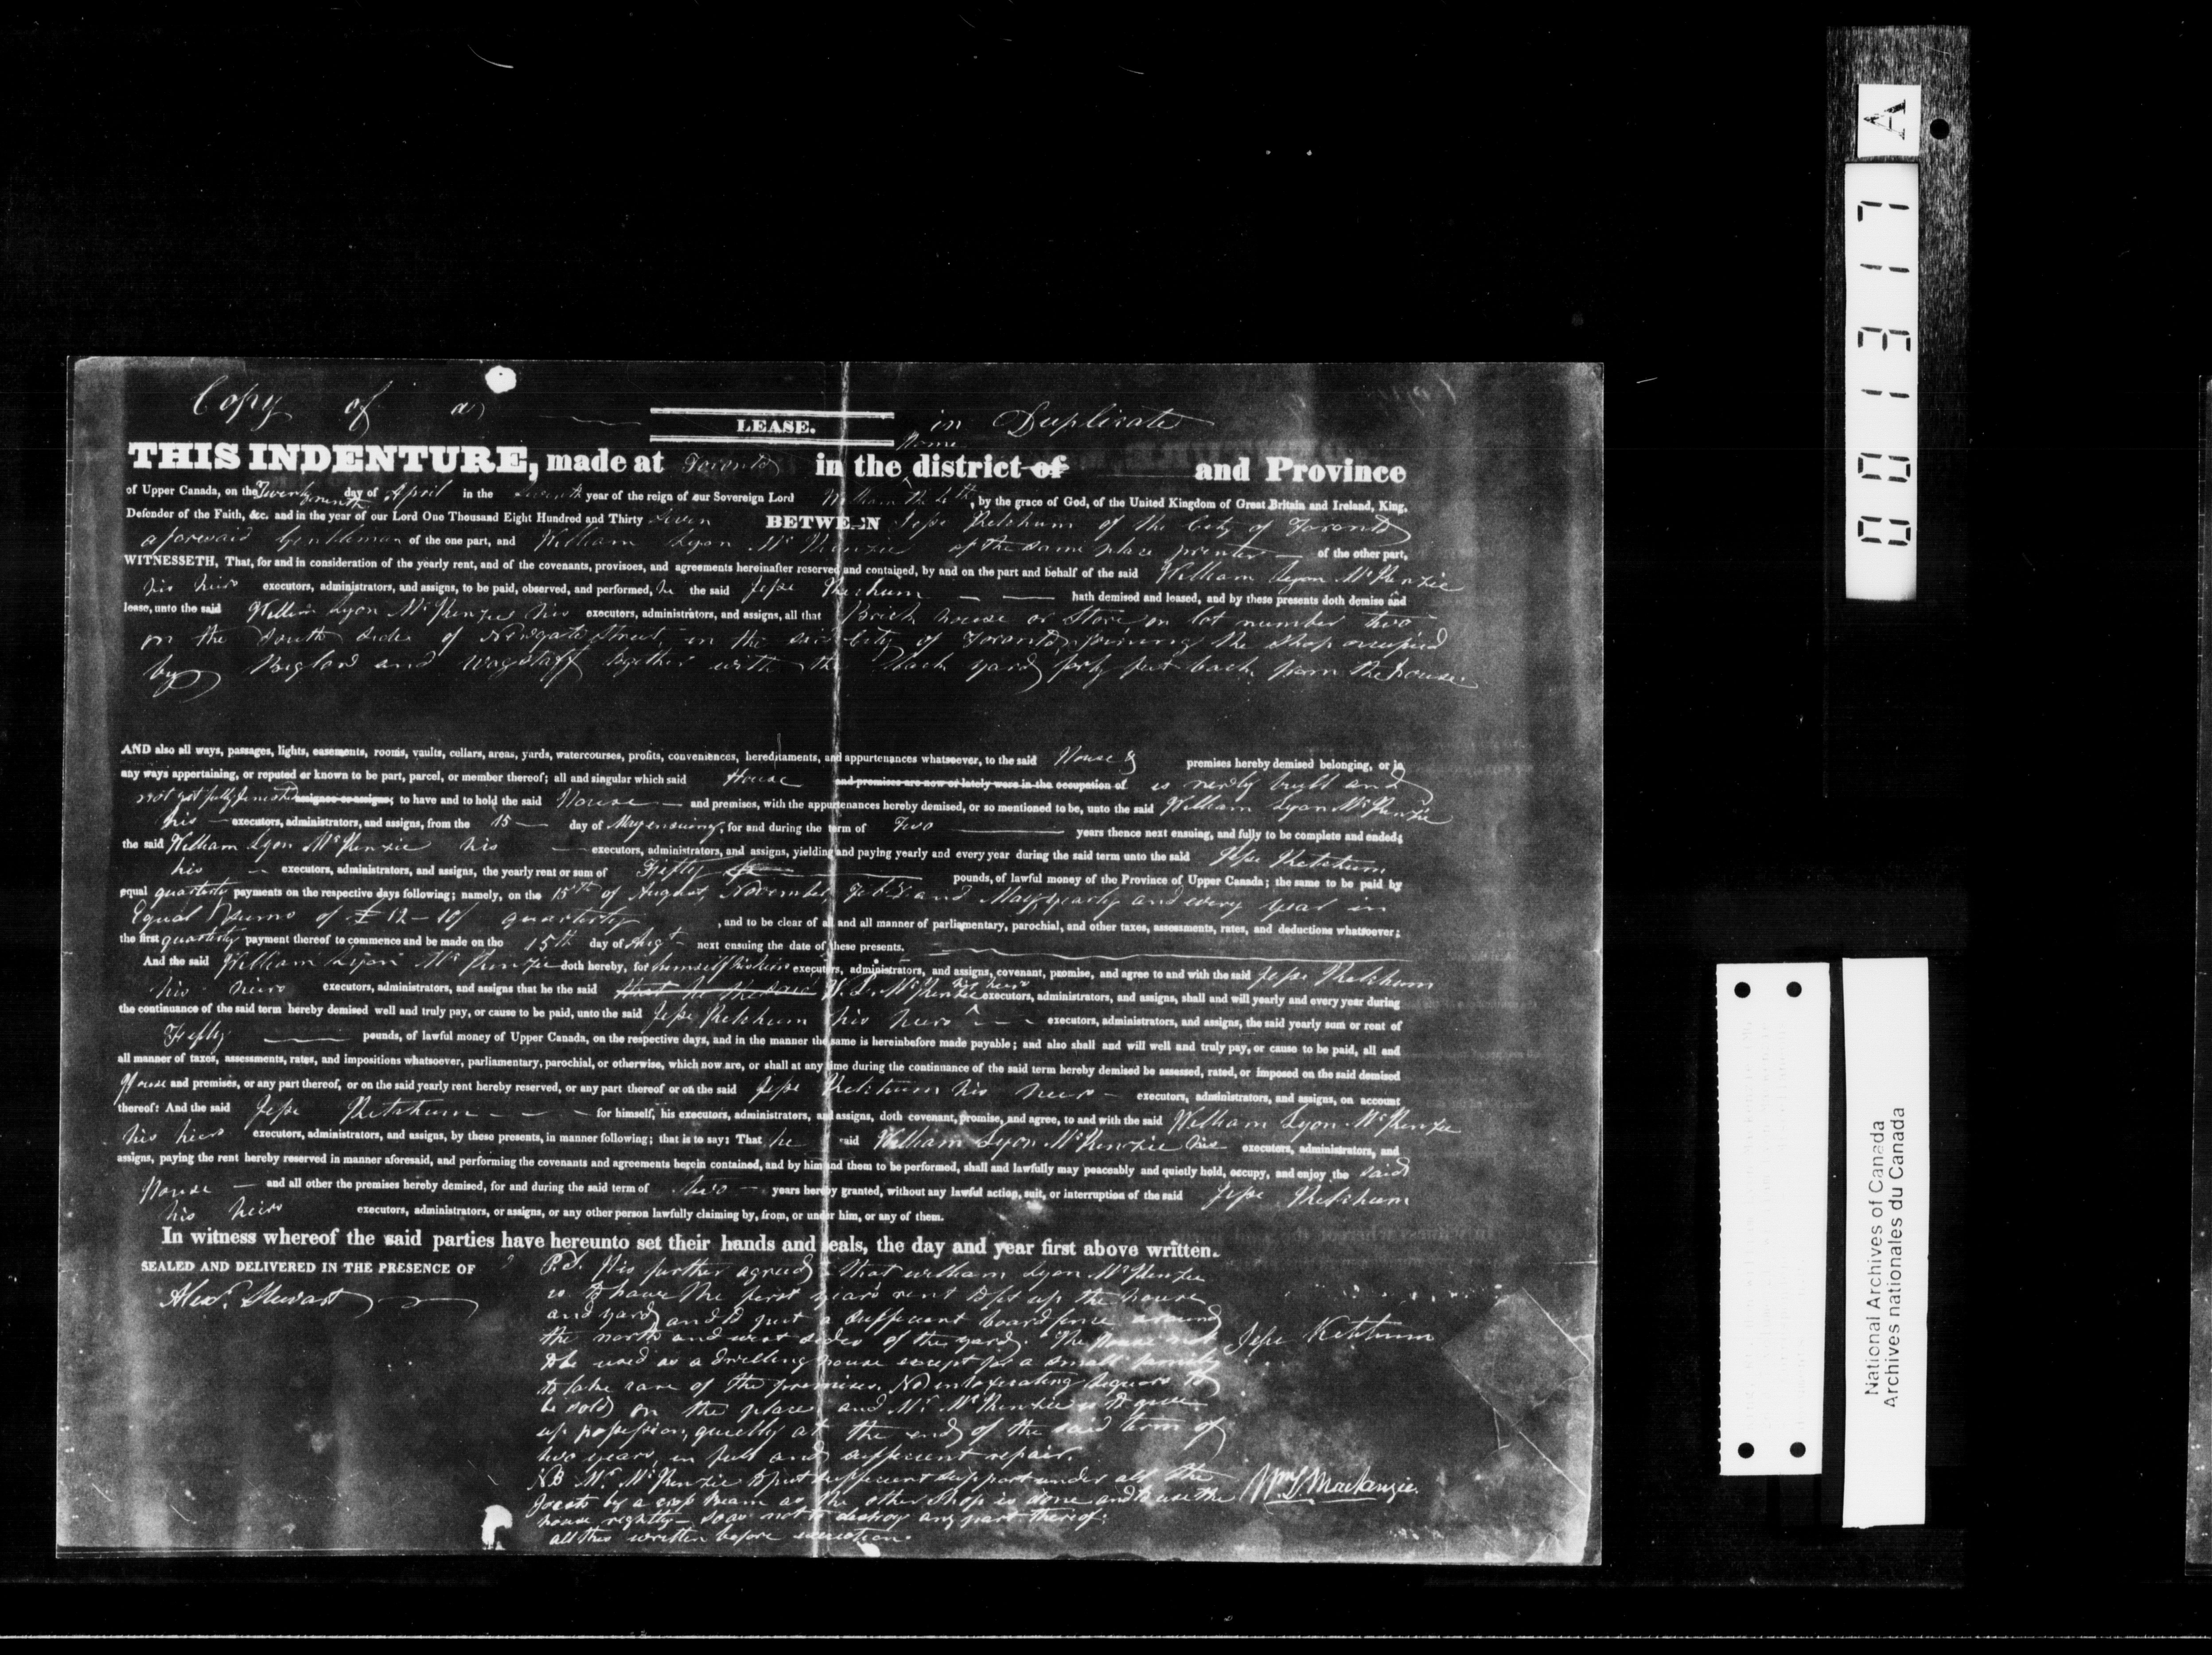 Copy of a LEASE. in Duplicate
Home
THIS INDENTURE, made at Toronto in the district of and Province
of Upper Canada, on the Twenty seventh day of April in the seventh year of the reign of our Sovereign Lord William the 4th, by the grace of God, of the United Kingdom of Great Britain and Ireland, King,
Defender of the Faith, &c. and in the year of our Lord One Thousand Eight Hundred and Thirty Seven BETWEEN Jesse Ketchum of the City of Toronto
aforesaid Gentleman of the one part, and William Lyon McKenzie of the same place printer of the other part,
WITNESSETH, That, for and in consideration of the yearly rent, and of the covenants, provisoes, and agreements hereinafter reserved and contained, by and on the part and behalf of the said William Lyon McKenzie
his heirs executors, administrators, and assigns, to be paid, observed, and performed, he the said Jesse Ketchum hath demised and leased, and by these presents doth demise and
lease, unto the said William Lyon McKenzie his executors, administrators, and assigns, all that Brick house or Store on lot number two
on the South side of Newgate Street in the said City of Toronto, joining the shop occupied
by Biglow and Wagstaff together with the back yard forty feet back from the house.
AND also all ways, passages, lights, easements, rooms, vaults, cellars, areas, yards, watercourses, profits, conveniences, hereditaments, and appurtenances whatsoever, to the said House & premises hereby demised belonging, or in
any ways appertaining, or reputed or known to be part, parcel, or member thereof; all and singular which said House and premises are now or lately were in the occupation of is newly built and
not yet fully finished assignee or assigns; to have and to hold the said House and premises, with the appurtenances hereby demised, or so mentioned to be, unto the said William Lyon McKenzie
his executors, administrators, and assigns, from the 15 day of May ensuing, for and during the term of Two years thence next ensuing, and fully to be complete and ended;
the said William Lyon McKenzie his executors, administrators, and assigns, yielding and paying yearly and every year during the said term unto the said Jesse Ketchum
his executors, administrators, and assigns, the yearly rent or sum of Fifty pounds, of lawful money of the Province of Upper Canada; the same to be paid by
equal quarterly payments on the respective days following; namely, on the 15th of August, November, Feby & and May, yearly and every year in
Equal sums of £12-10/ quarterly, and to be clear of all and all manner of parliamentary, parochial, and other taxes, assessments, rates, and deductions whatsoever;
the first quarterly payment thereof to commence and be made on the 15th day of Augt next ensuing the date of these presents.
And the said William Lyon McKenzie doth hereby, for himself his heirs executors, administrators, and assigns, covenant, promise, and agree to and with the said Jesse Ketchum
his heirs executors, administrators, and assigns that he the said that he the said W. L. McKenzie his heirs executors, administrators, and assigns, shall and will yearly and every year during
the continuance of the said term hereby demised well and truly pay, or cause to be paid, unto the said Jesse Ketchum his heirs executors, administrators, and assigns, the said yearly sum or rent of
Fifty pounds, of lawful money of Upper Canada, on the respective days, and in the manner the same is hereinbefore made payable; and also shall and will well and truly pay, or cause to be paid, all and
all manner of taxes, assessments, rates, and impositions whatsoever, parliamentary, parochial, or otherwise, which now are, or shall at any time during the continuance of the said term hereby demised be assessed, rated, or imposed on the said demised
House and premises, or any part thereof, or on the said yearly rent hereby reserved, or any part thereof or on the said Jesse Ketchum his heirs executors, administrators, and assigns, on account
thereof: And the said Jesse Ketchum for himself, his executors, administrators, and assigns, doth covenant, promise, and agree, to and with the said William Lyon McKenzie
his heirs executors, administrators, and assigns, by these presents, in manner following; that is to say: That he said William Lyon McKenzie his executors, administrators, and
assigns, paying the rent hereby reserved in manner aforesaid, and performing the covenants and agreements herein contained, and by him and them to be performed, shall and lawfully may peaceably and quietly hold, occupy, and enjoy the said
House and all other the premises hereby demised, for and during the said term of two years hereby granted, without any lawful action, suit, or interruption of the said Jesse Ketchum
his heirs executors, administrators, or assigns, or any other person lawfully claiming by, from, or under him, or any of them.
In witness whereof the said parties have hereunto set their hands and seals, the day and year first above written.
SEALED AND DELIVERED IN THE PRESENCE OF
Alexr. Stewart
P.S. It is further agreed that William Lyon McKenzie
is to have the first years rent to fit up the house
and yard and to put a sufficient board fence around
the north and west sides of the yard. The House not
to be used as a dwelling house except for a small family
to take care of the premises. No intoxicating liquors to
be sold on the place and Mr McKenzie is to give
up possession, quietly at the end of the said term of
two years, in full and sufficient repair.
NB Mr. McKenzie to put sufficient support under all the
Joists by a cross Beam as the other shop is done and to use the
house rightly - so as not to destroy any part thereof.
all this written before execution.
Jesse Ketchum
Wm. L. Mackenzie.
A
001317
National Archives of Canada
Archives nationales du Canada